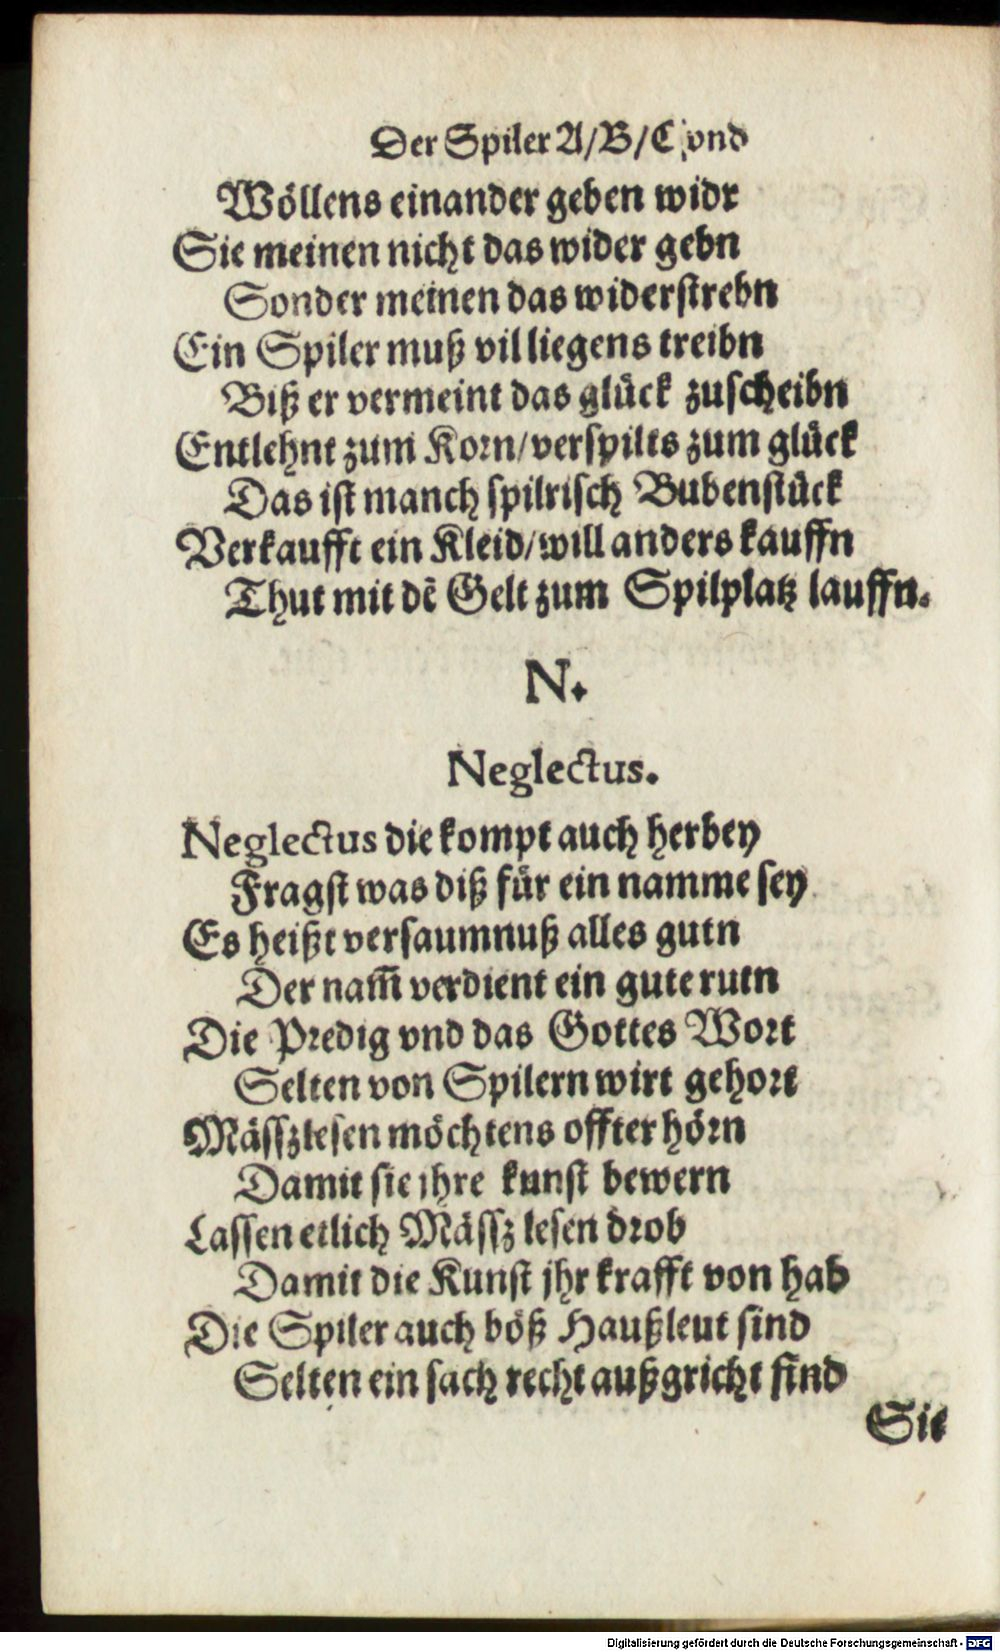 Der Spiler A/B/C, vnd
Wöllens einander geben widr
Sie meinen nicht das wider gebn
Sonder meinen das widerstrebn
Ein Spiler muß vil liegens treibn
Biß er vermeint das glück zuscheibn
Entlehnt zum Korn/verspilts zum glück
Das ist manch spilrisch Bubenstück
Verkaufft ein Kleid/will anders kauffn
Thut mit dē Gelt zum Spilplatz lauffn.
N.
Neglectus.
Neglectus die kompt auch herbey
Fragst was diß für ein namme sey
Es heißt versaumnuß alles gutn
Der nam̄ verdient ein gute rutn
Die Predig vnd das Gottes Wort
Selten von Spilern wirt gehort
Mässzlesen möchtens offter hörn
Damit sie jhre kunst bewern
Lassen etlich Mässz lesen drob
Damit die Kunst jhr krafft von hab
Die Spiler auch böß Haußleut sind
Selten ein sach recht außgricht find
Sie
Digitalisierung gefördert durch die Deutsche Forschungsgemeinschaft - DFG